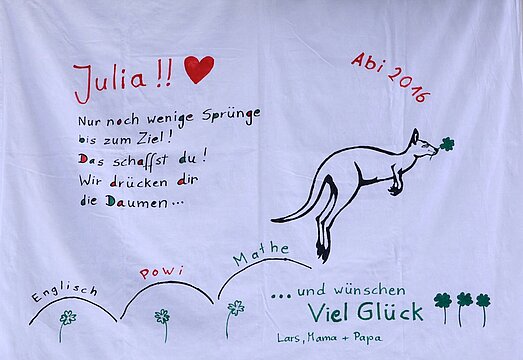 Julia!!
Abi 2016
Nur noch wenige Sprünge
bis zum Ziel!
Das schaffst du!
Wir drücken dir
die Daumen...
Englisch
POWi
Mathe
...und wünschen
Viel Glück
Lars, Mama + Papa